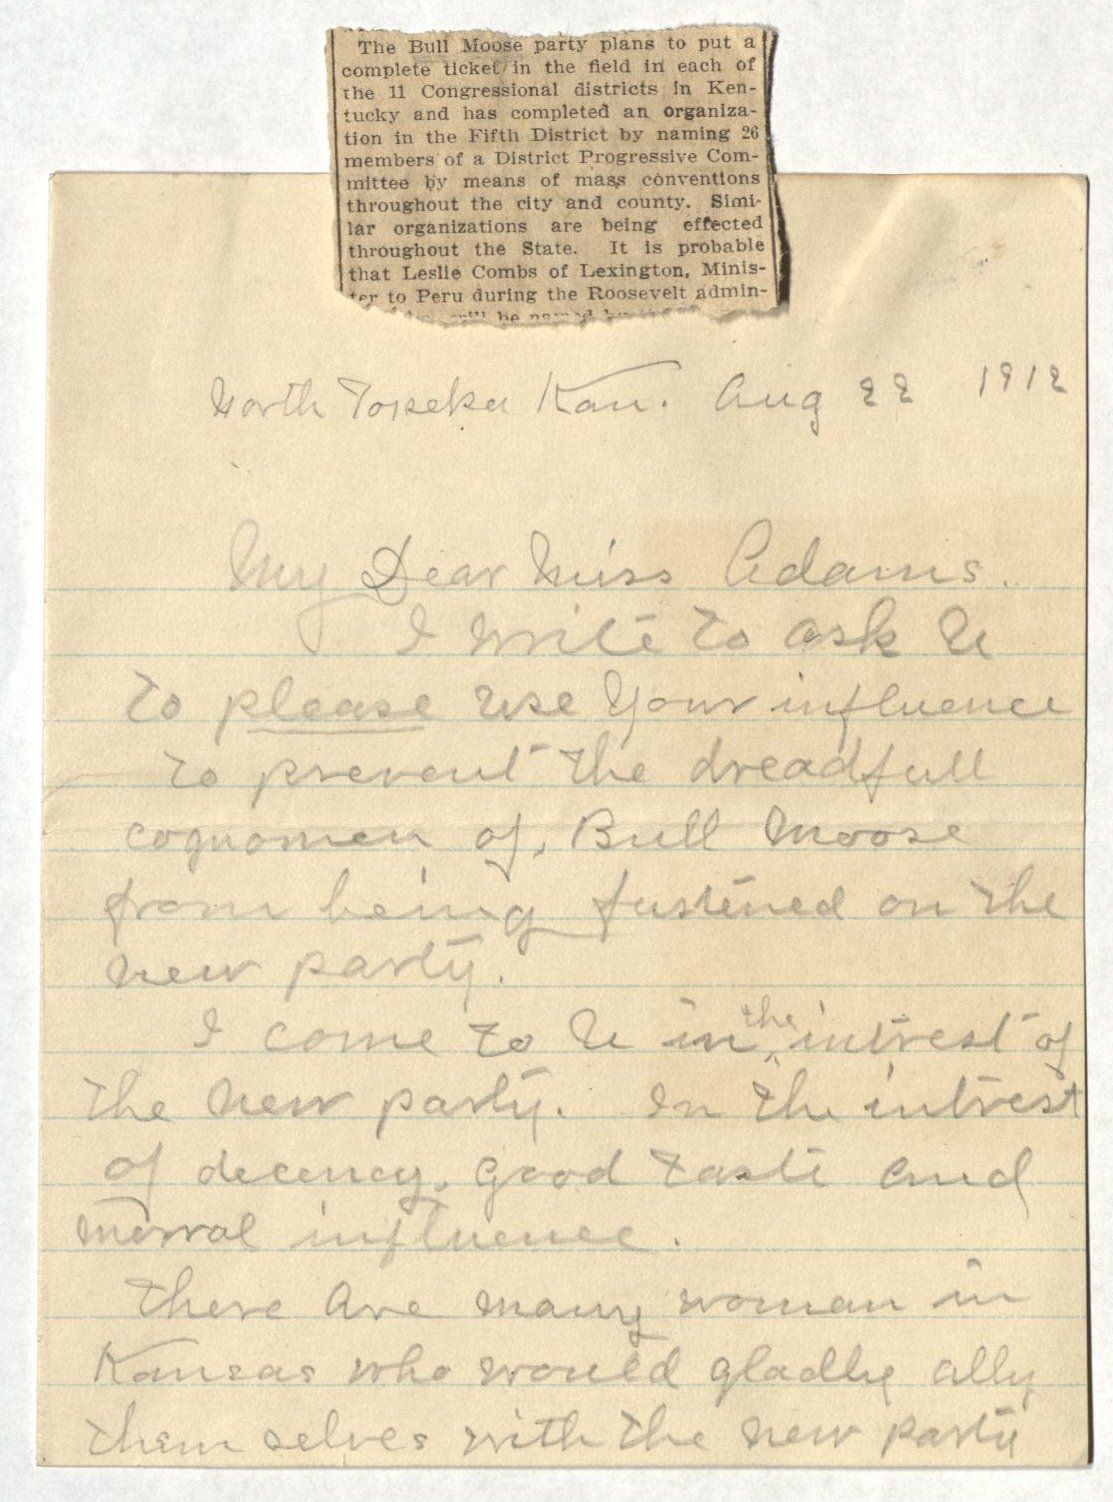 The Bull Moose party plans to put a
complete ticket in the field in each of
the 11 Congressional districts in Ken-
tucky and has completed an organiza-
tion in the Fifth District by naming 26
members of a District Progressive Com-
mittee by means of mass conventions
throughout the city and county. Simi-
lar organizations are being effected
throughout the State. It is probable
that Leslie Combs of Lexington, Minis-
ter to Peru during the Roosevelt admin-
will be named by the
North Topeka Kan. Aug 22 1912
My Dear Miss Adams.
I write to ask U
to please use your influence
to prevent the dreadfull
cognomen of, Bull Moose
from being fastened on the
new party.
I come to U in the intrest of
the new party. In the intrest
of decency, good taste and
morral influence.
there are many woman in
Kansas who would gladly ally
them selves with the new party